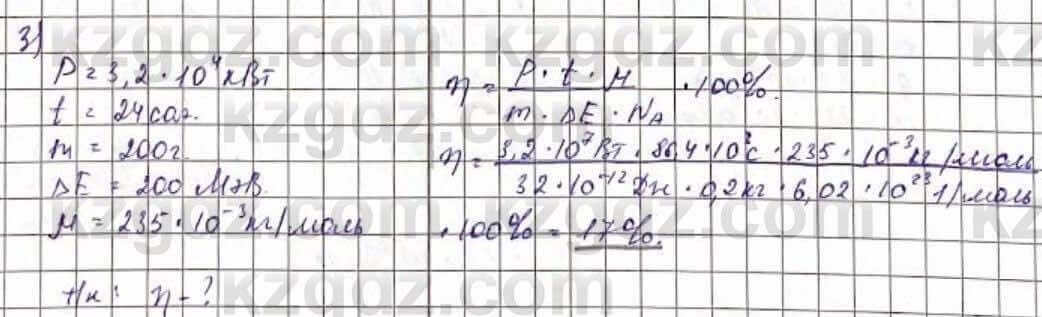 3)
P = 3,2 · 10⁴ кВт
t = 24 саг.
m = 200г
ΔE = 200 МэВ.
M = 235 · 10⁻³ кг/моль
Т/к: η - ?
η = P · t · M / m · ΔE · Nᴀ · 100%.
η = 3,2 · 10⁷ Вт · 86,4 · 10³ с · 235 · 10⁻³ кг/моль / 32 · 10⁻¹² Дж · 0,2 кг · 6,02 · 10²³ 1/моль
· 100% = 17%.
kzgdz.com
kzgdz.com
kzgdz.com
kzgdz.com